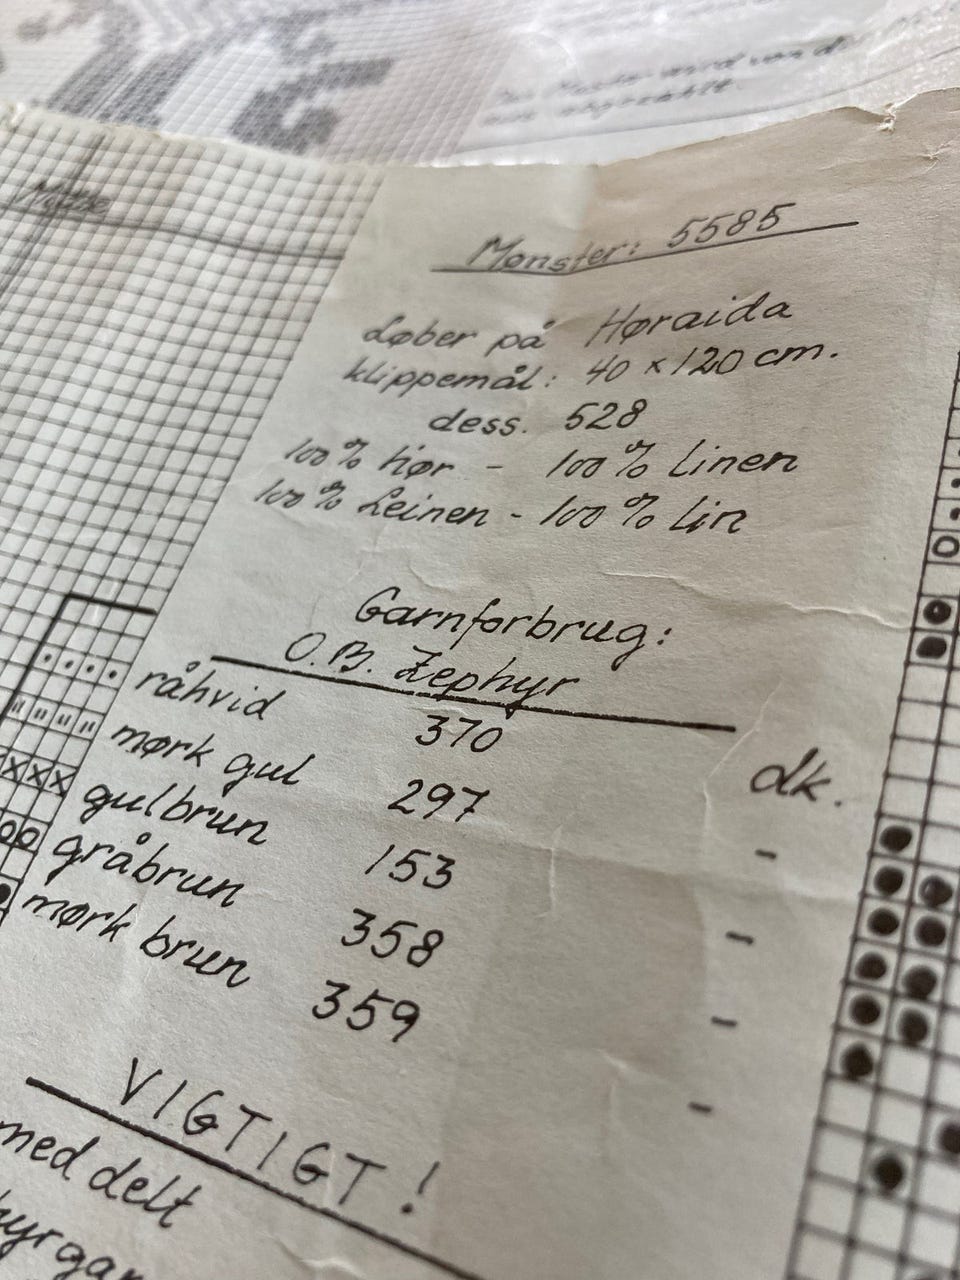 Midte
Mønster: 5585
Løber på Høraida
klippemål: 40 x 120 cm.
dess. 528
100% hør - 100% linen
100% Leinen - 100% lin
Garnforbrug:
O.B. Zephyr
råhvid 370 dk.
mørk gul 297 -
gulbrun 153 -
gråbrun 358 -
mørk brun 359 -
VIGTIGT!
med delt